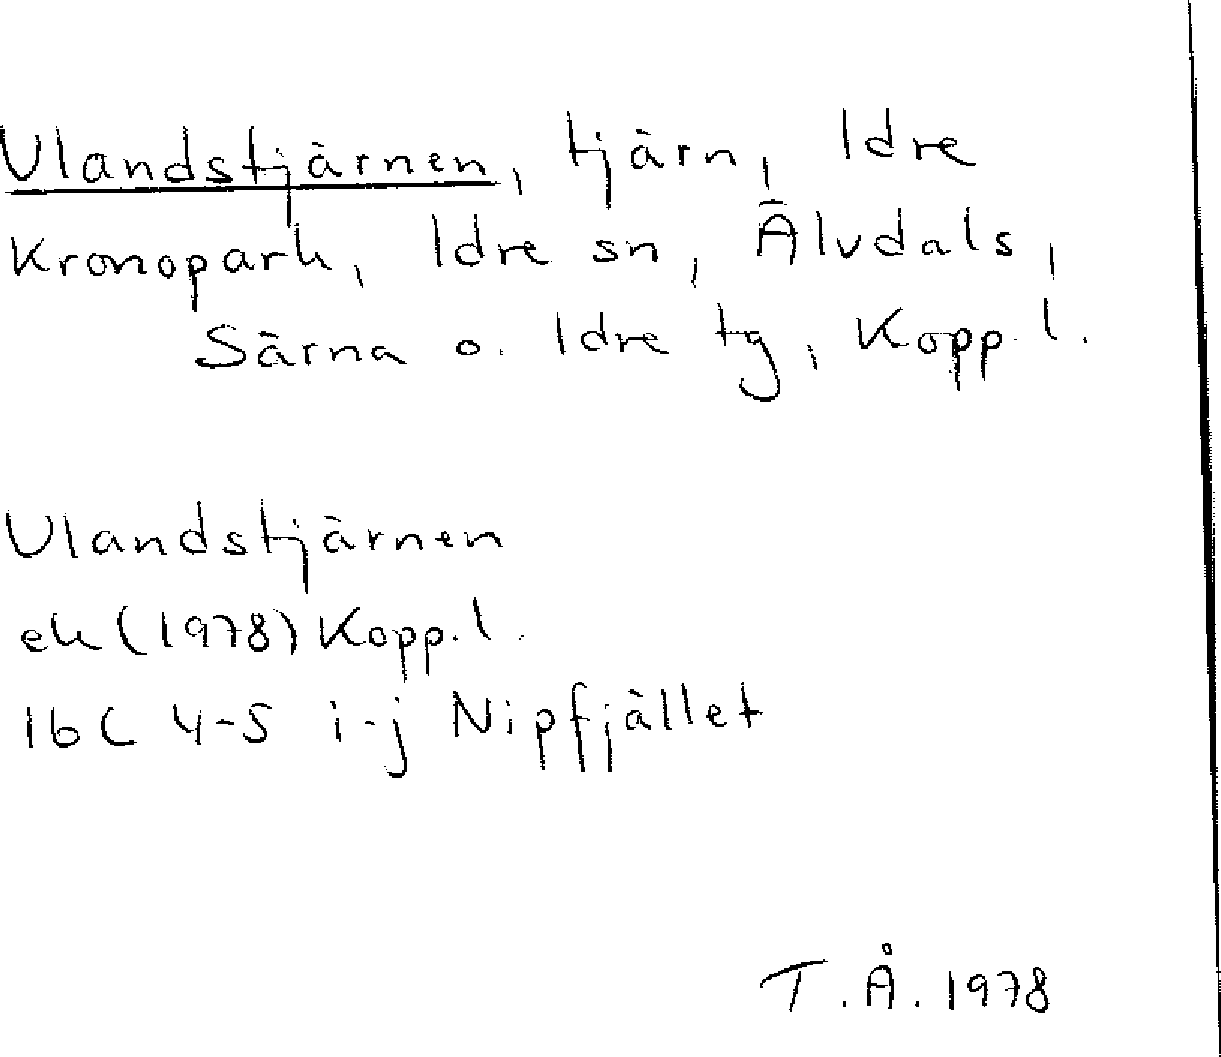 Ulandstjärnen, tjärn, Idre
Kronopark, Idre sn, Älvdals,
Särna o. Idre tg, Kopp. l.
Ulandstjärnen
ek (1978) Kopp. l.
16 C 4-5 i-j Nipfjället
T. Å. 1978